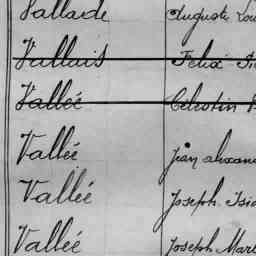 Vallade Auguste Lou
Vallais Félix
Vallée Célestin
Vallée Jean Alexan
Vallée Joseph Isid
Vallée Joseph Mari